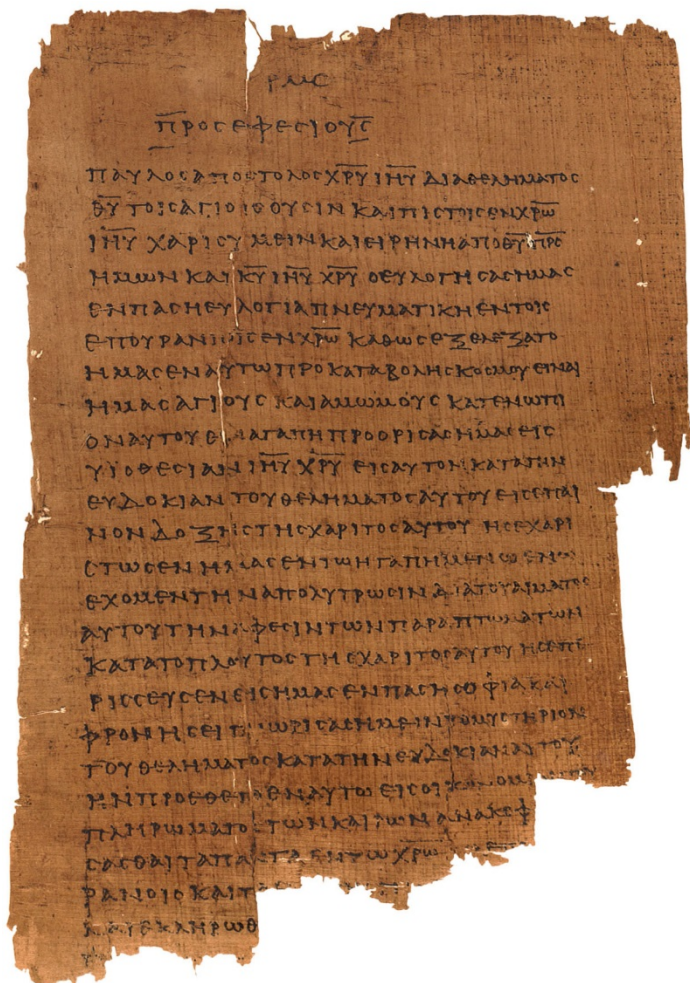 ΡΜϚ
Π̅ΡΟΣ ΕΦΕΣΙΟΥΣ̅
ΠΑΥΛΟΣ ΑΠΟΣΤΟΛΟΣ Χ̅Ρ̅Υ̅ Ι̅Η̅Υ̅ ΔΙΑ ΘΕΛΗΜΑΤΟΣ
Θ̅Υ̅ ΤΟΙΣ ΑΓΙΟΙΣ ΟΥΣΙΝ ΚΑΙ ΠΙΣΤΟΙΣ ΕΝ Χ̅Ρ̅Ω̅
Ι̅Η̅Υ̅ ΧΑΡΙΣ ΥΜΕΙΝ ΚΑΙ ΕΙΡΗΝΗ ΑΠΟ Θ̅Υ̅ Π̅Ρ̅Σ̅
ΗΜΩΝ ΚΑΙ Κ̅Υ̅ Ι̅Η̅Υ̅ Χ̅Ρ̅Υ̅ Ο ΕΥΛΟΓΗΣΑΣ ΗΜΑΣ
ΕΝ ΠΑΣΗ ΕΥΛΟΓΙΑ ΠΝΕΥΜΑΤΙΚΗ ΕΝ ΤΟΙΣ
ΕΠΟΥΡΑΝΙΟΙΣ ΕΝ Χ̅Ρ̅Ω̅ ΚΑΘΩΣ ΕΞΕΛΕΞΑΤΟ
ΗΜΑΣ ΕΝ ΑΥΤΩ ΠΡΟ ΚΑΤΑΒΟΛΗΣ ΚΟΣΜΟΥ ΕΙΝΑΙ
ΗΜΑΣ ΑΓΙΟΥΣ ΚΑΙ ΑΜΩΜΟΥΣ ΚΑΤΕΝΩΠΙ
ΟΝ ΑΥΤΟΥ ΕΝ ΑΓΑΠΗ ΠΡΟΟΡΙΣΑΣ ΗΜΑΣ ΕΙΣ
ΥΙΟΘΕΣΙΑΝ Ι̅Η̅Υ̅ Χ̅Ρ̅Υ̅ ΕΙΣ ΑΥΤΟΝ ΚΑΤΑ ΤΗΝ
ΕΥΔΟΚΙΑΝ ΤΟΥ ΘΕΛΗΜΑΤΟΣ ΑΥΤΟΥ ΕΙΣ ΕΠΑΙ
ΝΟΝ ΔΟΞΗΣ ΤΗΣ ΧΑΡΙΤΟΣ ΑΥΤΟΥ ΗΣ ΕΧΑΡΙ
ΣΤΩΣΕΝ ΗΜΑΣ ΕΝ ΤΩ ΗΓΑΠΗΜΕΝΩ ΕΝ
ΕΧΟΜΕΝ ΤΗΝ ΑΠΟΛΥΤΡΩΣΙΝ ΔΙΑ ΤΟΥ ΑΙΜΑΤΟΣ
ΑΥΤΟΥ ΤΗΝ ΑΦΕΣΙΝ ΤΩΝ ΠΑΡΑΠΤΩΜΑΤΩΝ
ΚΑΤΑ ΤΟ ΠΛΟΥΤΟΣ ΤΗΣ ΧΑΡΙΤΟΣ ΑΥΤΟΥ ΗΣ ΕΠΕ
ΡΙΣΣΕΥΣΕΝ ΕΙΣ ΗΜΑΣ ΕΝ ΠΑΣΗ ΣΟΦΙΑ ΚΑΙ
ΦΡΟΝΗΣΕΙ ΓΝΩΡΙΣΑΣ ΗΜΕΙΝ ΤΟ ΜΥΣΤΗΡΙΟΝ
ΤΟΥ ΘΕΛΗΜΑΤΟΣ ΚΑΤΑ ΤΗΝ ΕΥΔΟΚΙΑΝ ΑΥΤΟΥ
ΗΝ ΠΡΟΕΘΕΤΟ ΕΝ ΑΥΤΩ ΕΙΣ
ΠΛΗΡΩΜΑΤΟΣ ΤΩΝ ΚΑΙΡΩΝ ΑΝΑΚΕΦ
ΣΑΣΘΑΙ ΤΑ ΠΑΝΤΑ ΕΝ ΤΩ Χ̅Ρ̅Ω̅
ΡΑΝΟΙΣ ΚΑΙ ΤΑ
ΚΑΙ ΕΚΛΗΡΩΘ